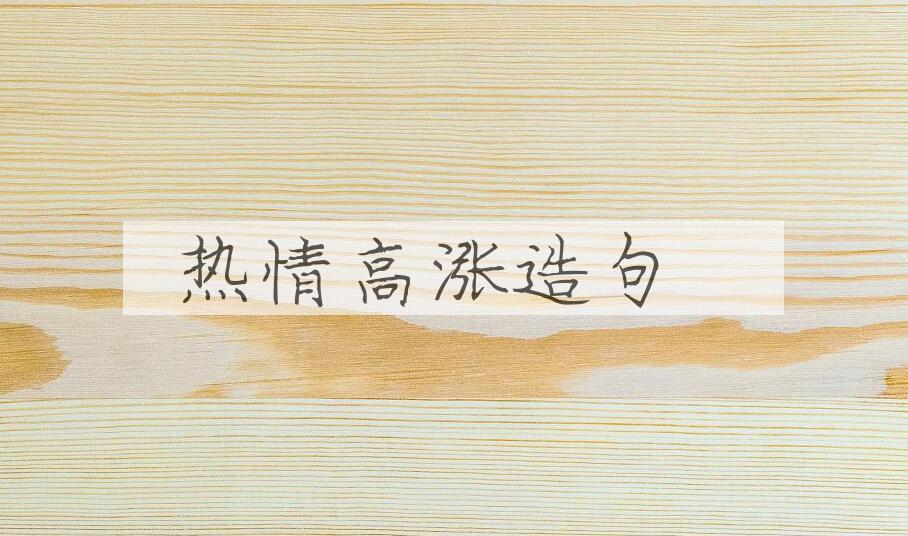 热情高涨造句